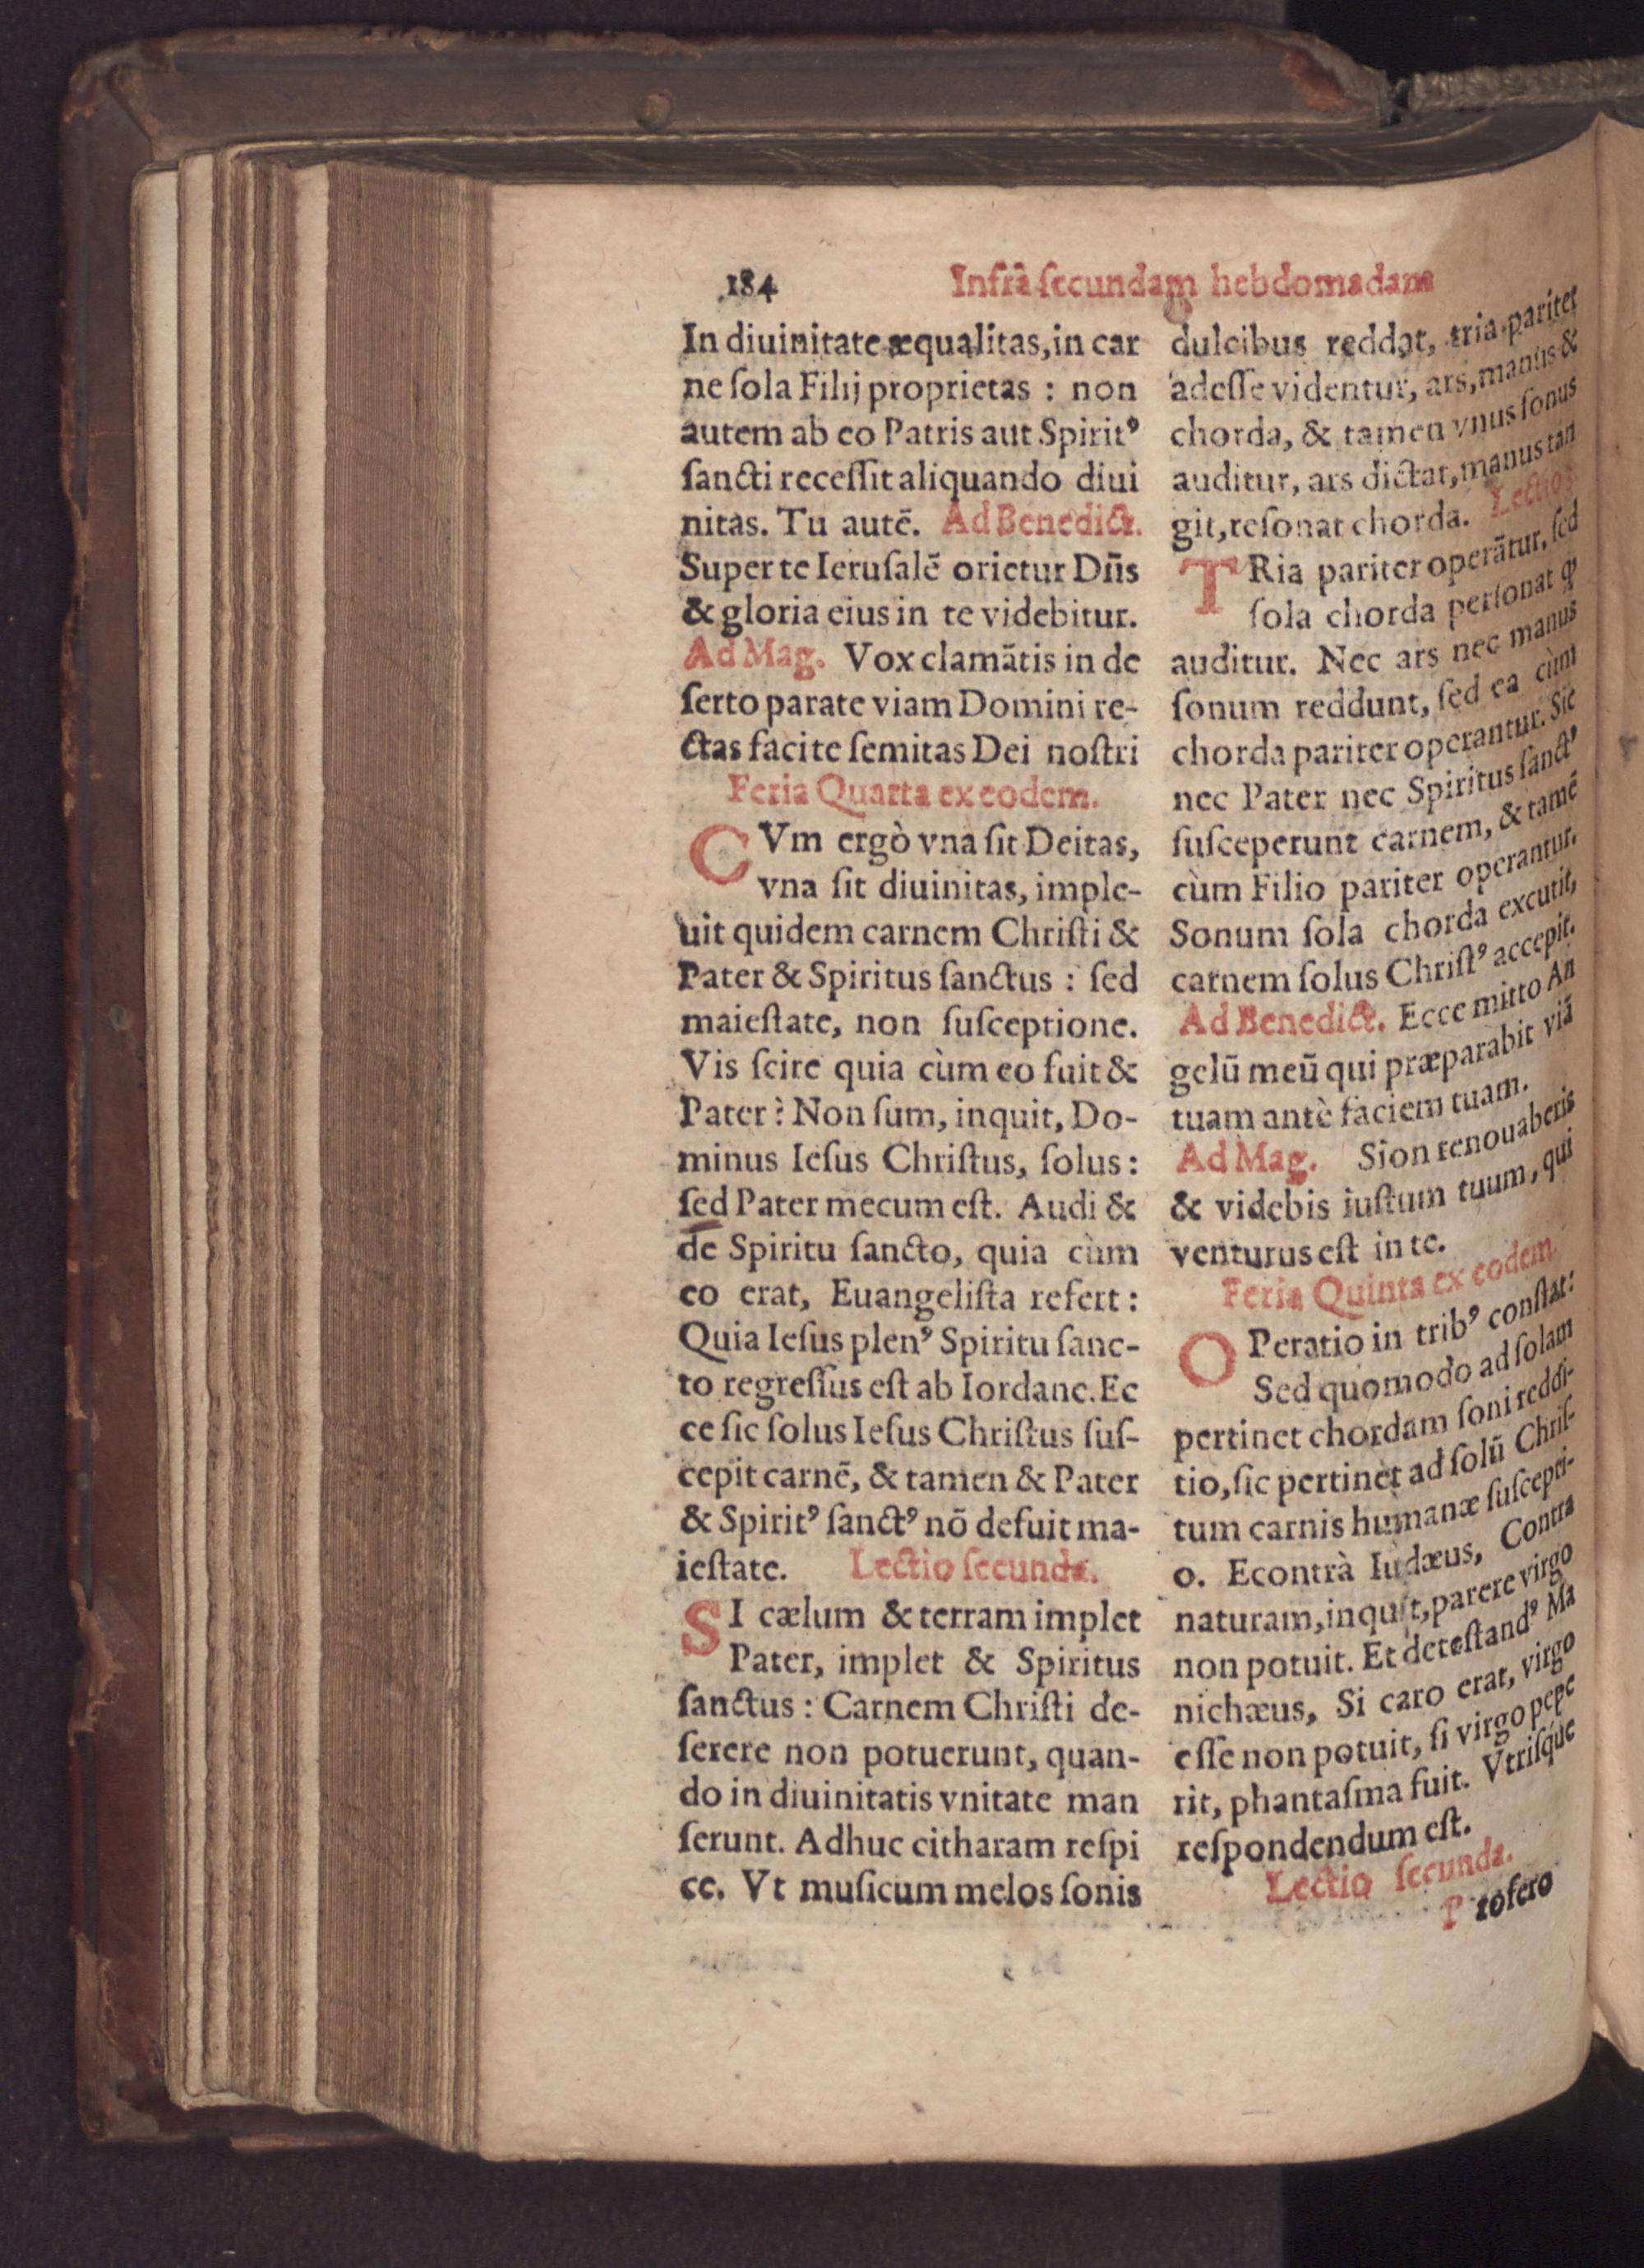 184
Infrà ſecundam hebdomadam
In diuinitate æqualitas, in car
ne ſola Filij proprietas : non
autem ab eo Patris aut Spiritꝰ
ſancti receſſit aliquando diui
nitas. Tu autē. Ad Benedict.
Super te Ieruſalē orietur Dn̄s
& gloria eius in te videbitur.
Ad Mag. Vox clamātis in de
ſerto parate viam Domini re-
ctas facite ſemitas Dei noſtri
Feria Quarta ex eodem.
CVm ergò vna ſit Deitas,
vna ſit diuinitas, imple-
uit quidem carnem Chriſti &
Pater & Spiritus ſanctus : ſed
maieſtate, non ſuſceptione.
Vis ſcire quia cùm eo fuit &
Pater? Non ſum, inquit, Do-
minus Ieſus Chriſtus, ſolus:
ſed Pater mecum eſt. Audi &
de Spiritu ſancto, quia cùm
eo erat, Euangeliſta refert:
Quia Ieſus plenꝰ Spiritu ſanc-
to regreſſus eſt ab Iordane. Ec
ce ſic ſolus Ieſus Chriſtus ſuſ-
cepit carnē, & tamen & Pater
& Spiritꝰ ſanctꝰ nō defuit ma-
ieſtate. Lectio ſecunda.
SI cælum & terram implet
Pater, implet & Spiritus
ſanctus : Carnem Chriſti de-
ſerere non potuerunt, quan-
do in diuinitatis vnitate man
ſerunt. Adhuc citharam reſpi
ce. Vt muſicum melos ſonis
dulcibus reddat, tria pariter
adeſſe videntur, ars, manus &
chorda, & tamen vnus ſonus
auditur, ars dictat, manus tan
git, reſonat chorda. Lectio
TRia pariter operātur, ſed
ſola chorda perſonat
auditur. Nec ars nec manus
ſonum reddunt, ſed ea cùm
chorda pariter operantur. Sic
nec Pater nec Spiritus ſanctꝰ
ſuſceperunt carnem, & tamē
cùm Filio pariter operantur.
Sonum ſola chorda excutit,
carnem ſolus Chriſtꝰ accepit.
Ad Benedict. Ecce mitto An
gelū meū qui præparabit viā
tuam antè faciem tuam.
Ad Mag. Sion renouaberis
& videbis iuſtum tuum, qui
venturus eſt in te.
Feria Quinta ex eodem
OPeratio in tribꝰ conſtat:
Sed quomodo ad ſolam
pertinet chordam ſoni reddi-
tio, ſic pertinet ad ſolū Chriſ-
tum carnis humanæ ſuſcepti-
o. Econtrà Iudæus, Contra
naturam, inquit, parere virgo
non potuit. Et deteſtandꝰ Ma
nichæus, Si caro erat, virgo
eſſe non potuit, ſi virgo pepe
rit, phantaſma fuit. Vtriſque
reſpondendum eſt.
Lectio ſecunda.
Profero